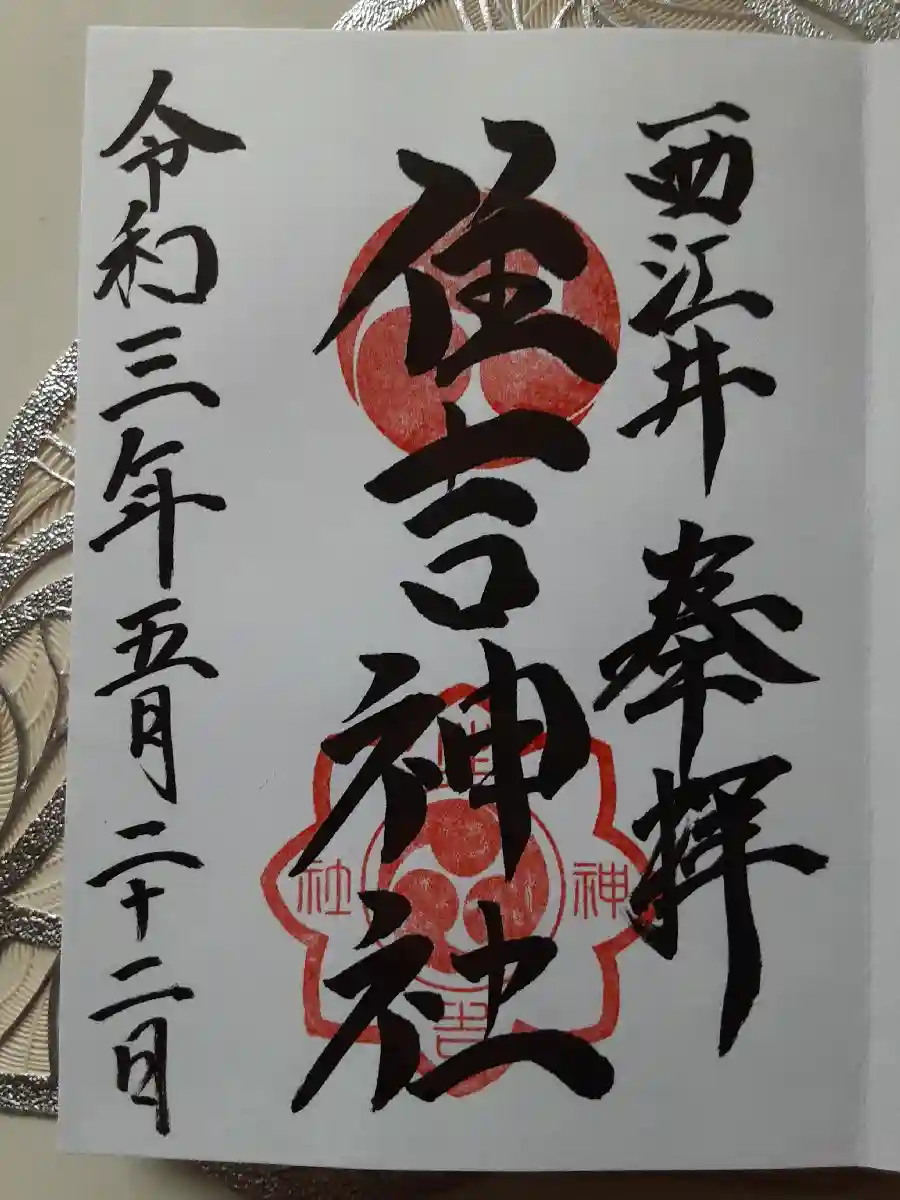 西江井 奉拝
住吉神社
令和三年五月二十二日
住
吉
神
社